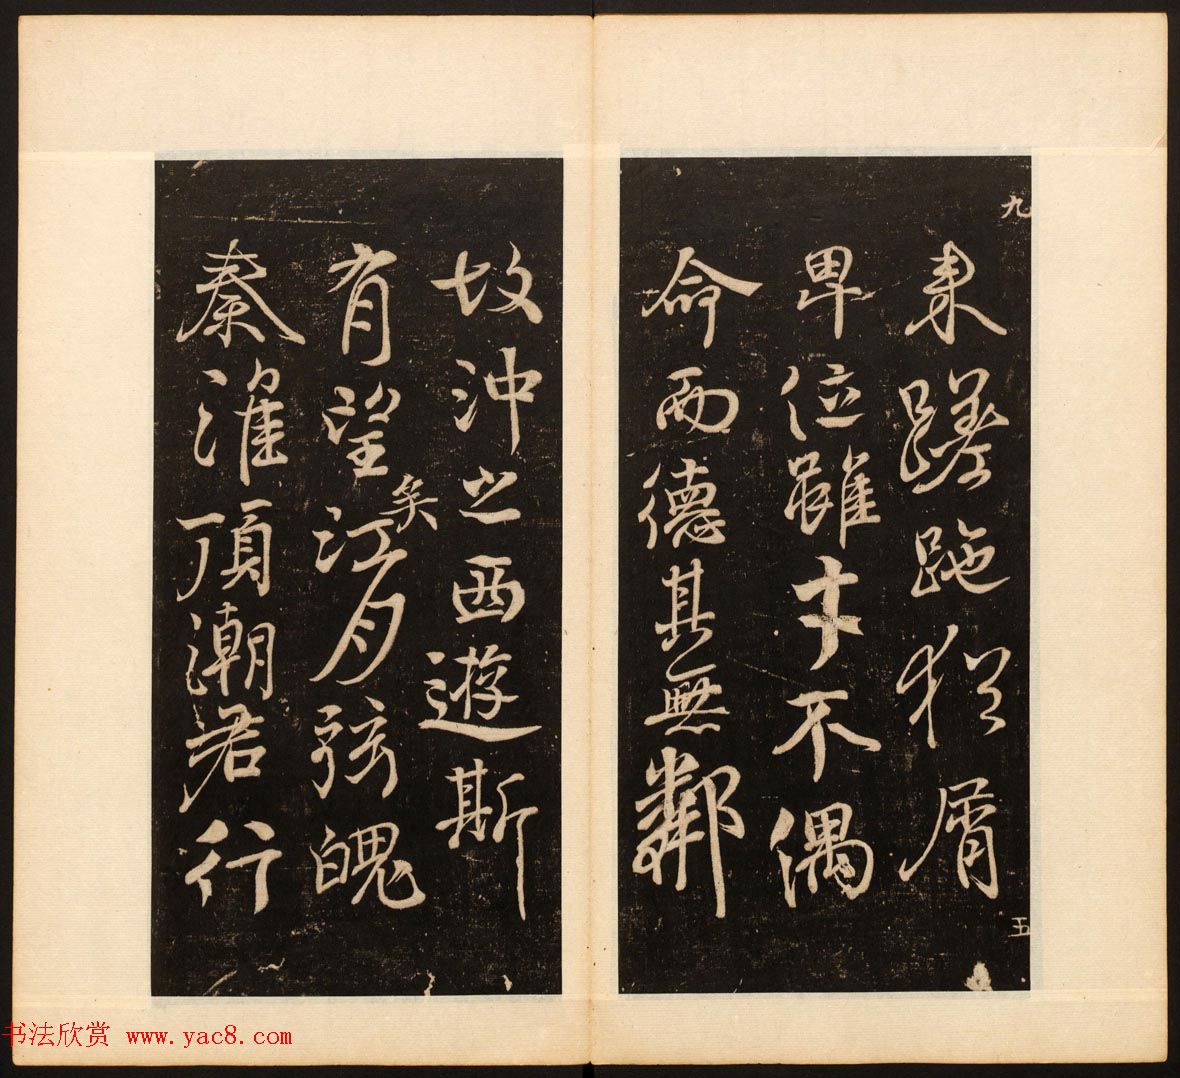 九
來蹉跎猶屑
卑位雖才不偶
命而德其無鄰
五
故沖之西遊斯
有望矣江月弦魄
秦淮頂潮君行
书法欣赏 www.yac8.com